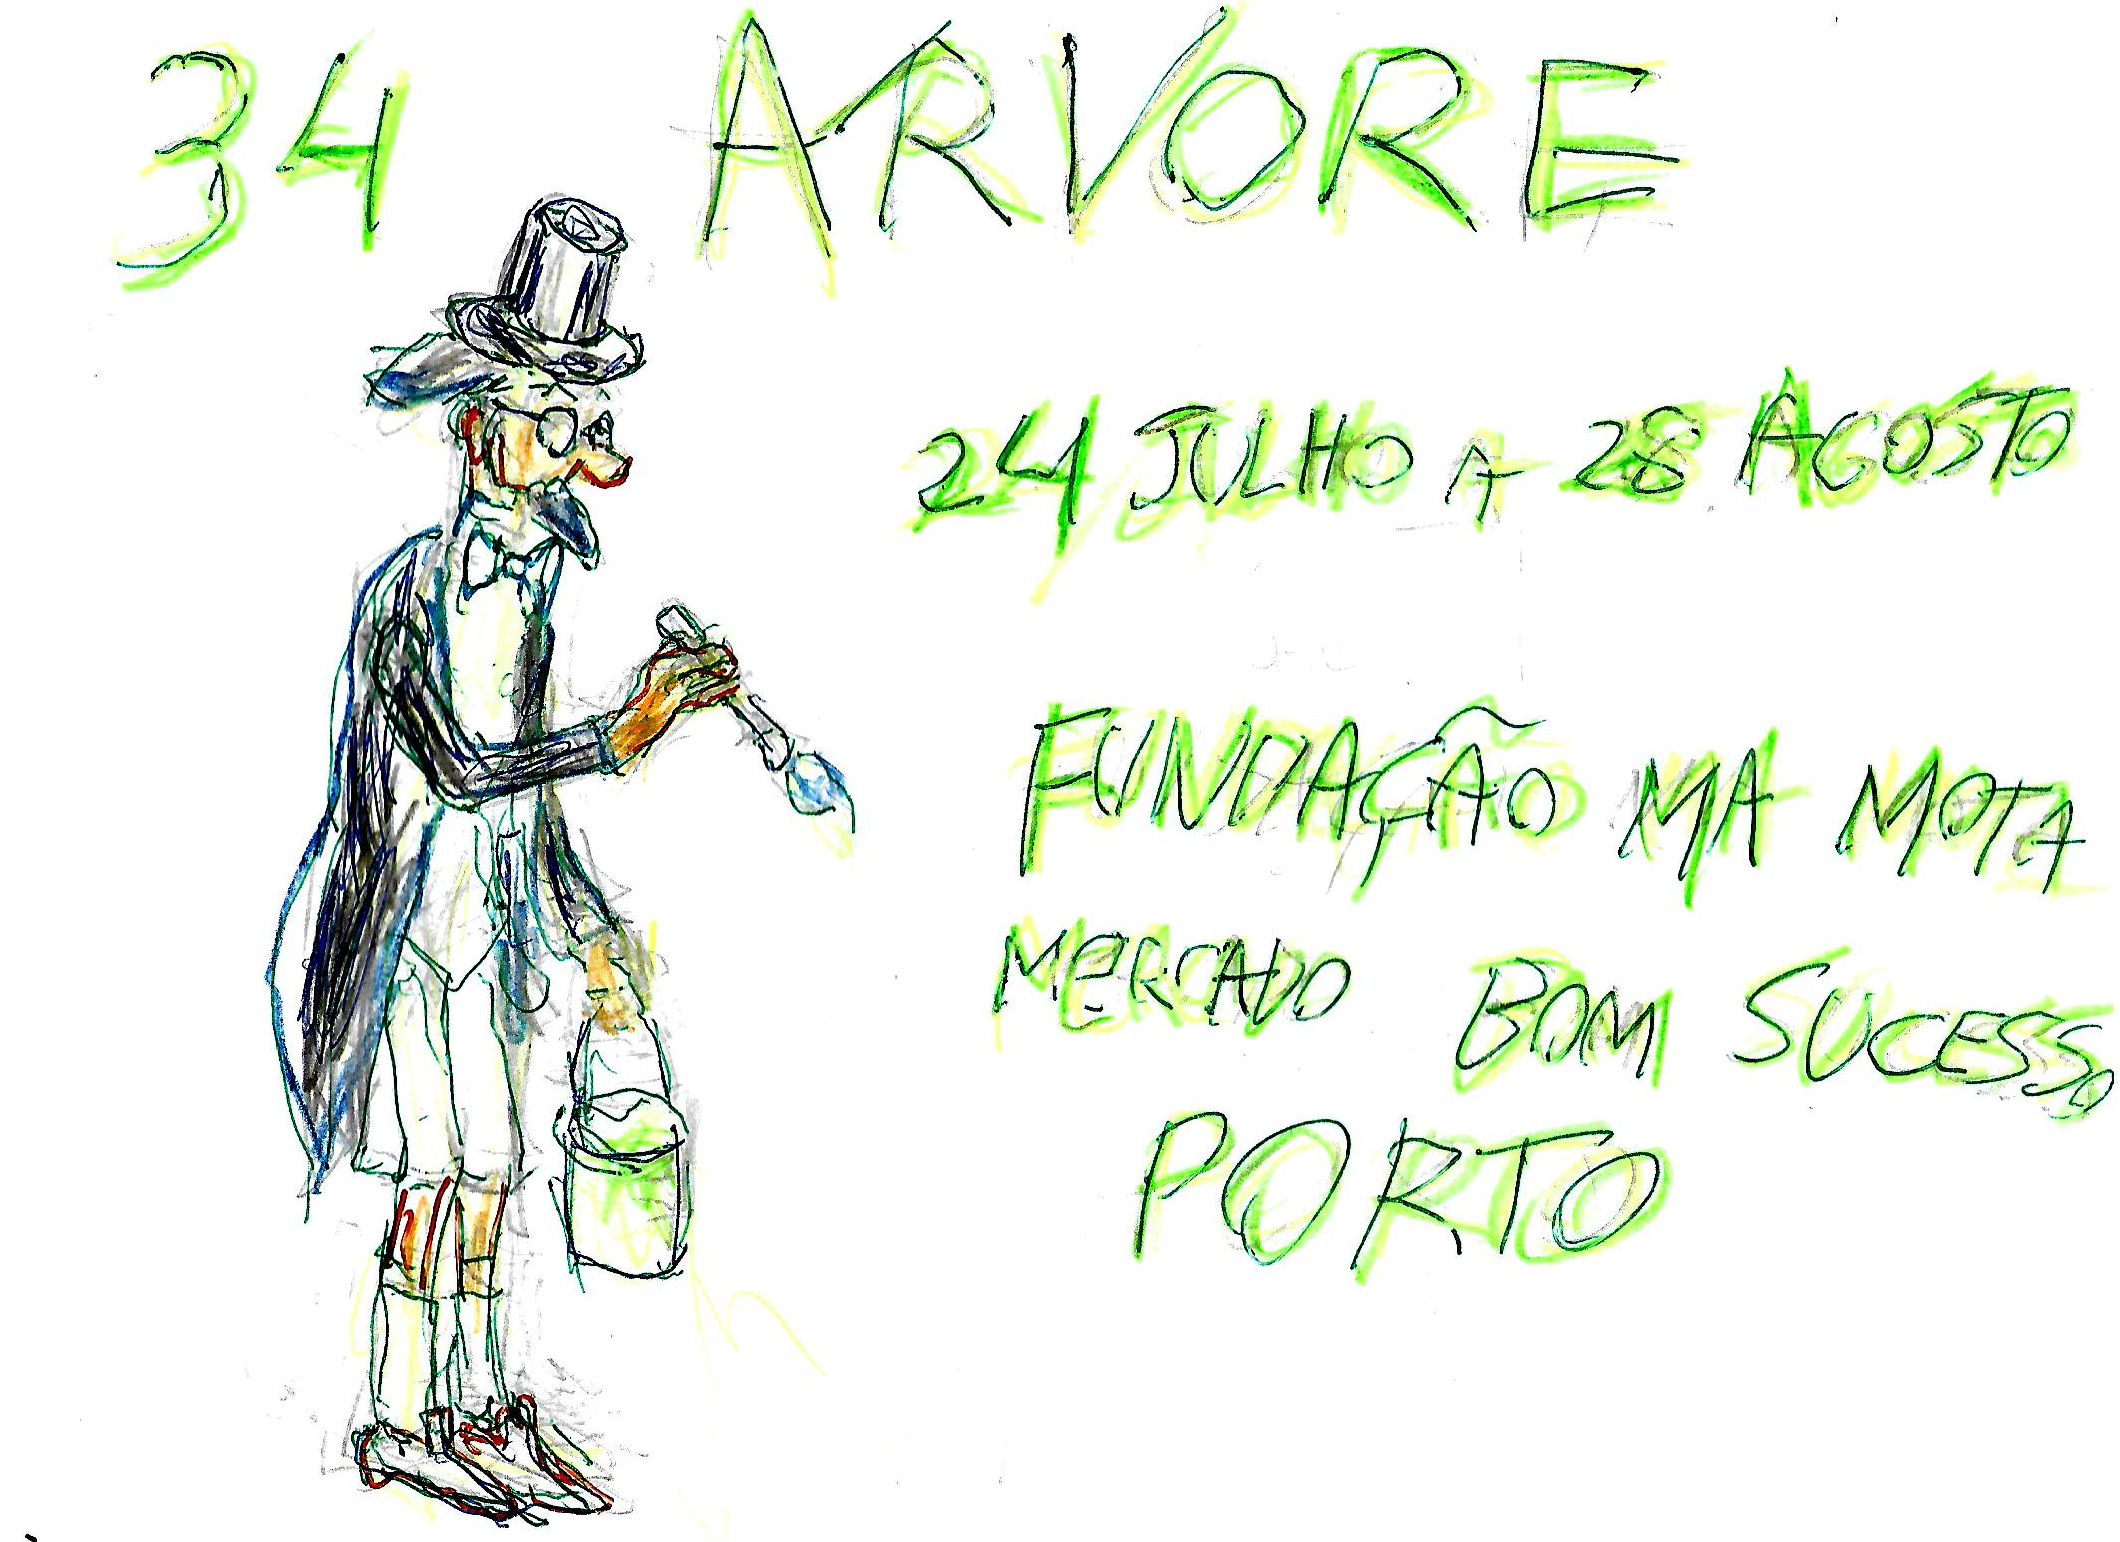 34 ARVORE
24 JULHO A 28 AGOSTO
FUNDAÇÃO MA MOTA
MERCADO BOM SUCESSO
PORTO